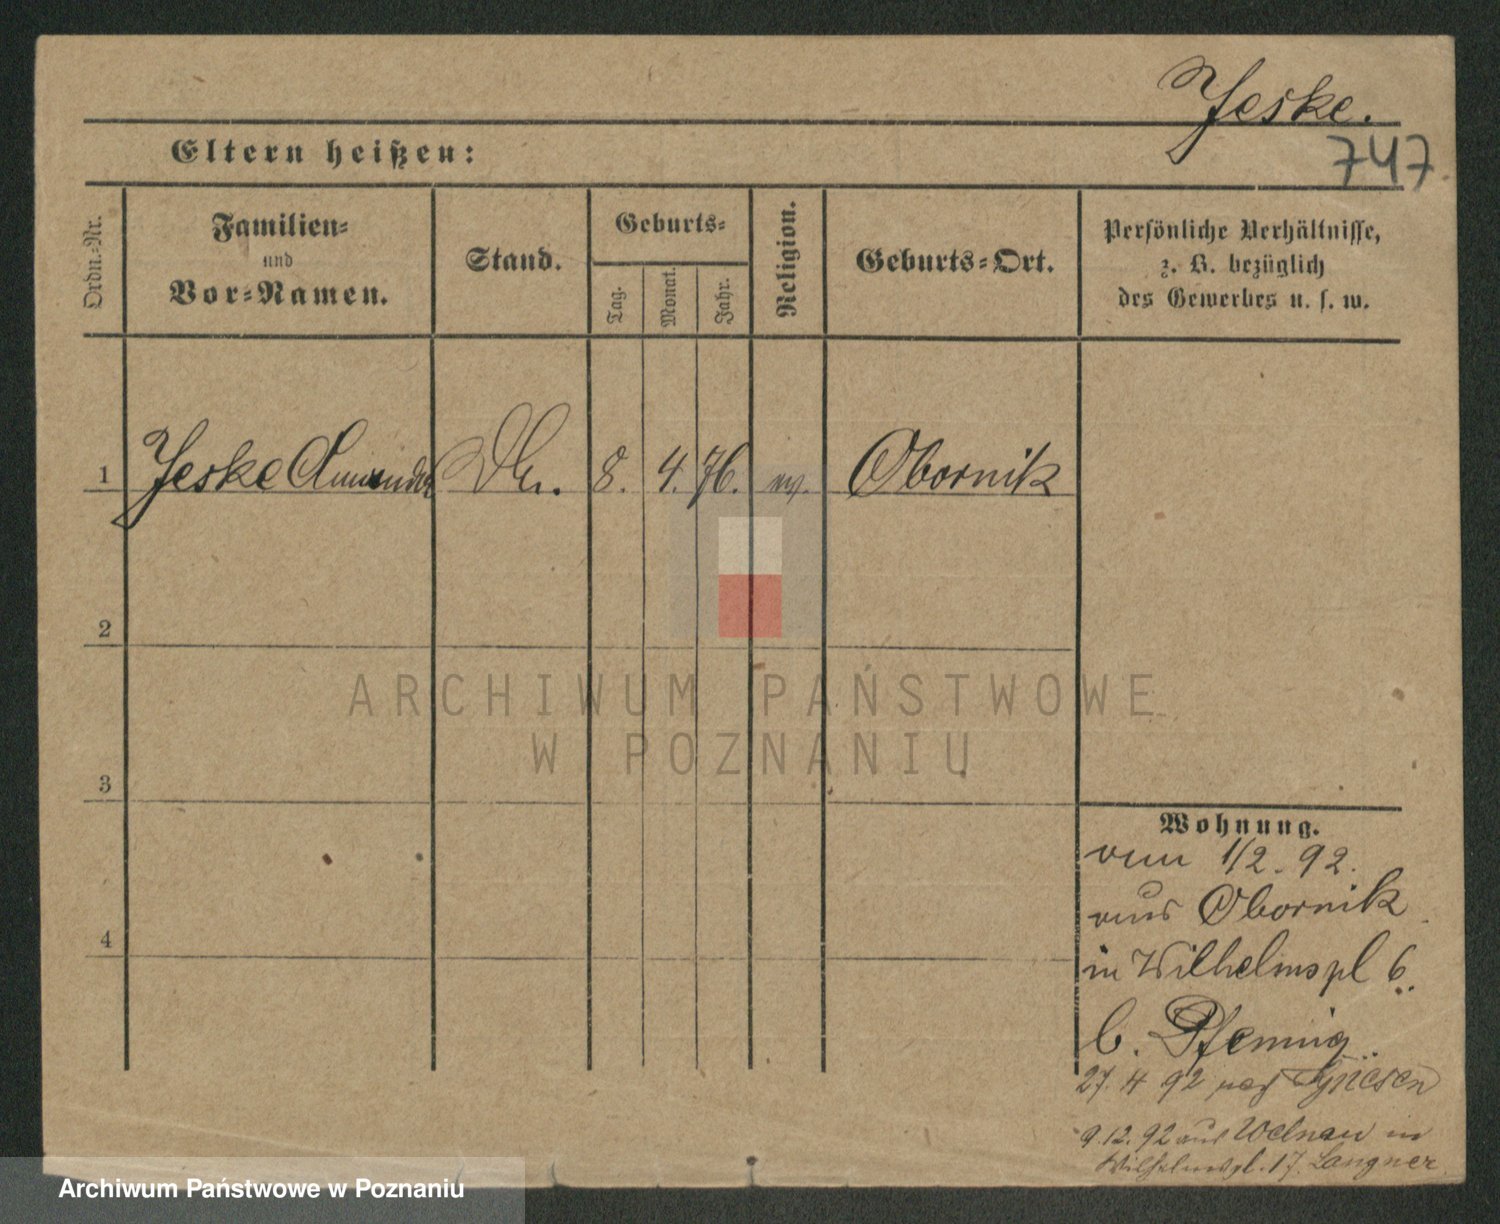 Jeske.
747
Eltern heißen:
Ordn.-Nr.
Familien-
und
Vor-Namen.
Stand.
Geburts-
Tag.
Monat.
Jahr.
Religion.
Geburts-Ort.
Persönliche Verhältnisse,
z. B. bezüglich
des Gewerbes u. s. w.
1 Jeske 8. 4. 76. Obornik
2
3
4
Wohnung.
vom 1/2. 92.
aus Obornik
in Wilhelmspl 6.
b. Pfennig
27. 4 92 nach Gnesen
9.12. 92 aus Welnau in
Wilhelmspl. 17. Langner
ARCHIWUM PAŃSTWOWE
W POZNANIU
Archiwum Państwowe w Poznaniu